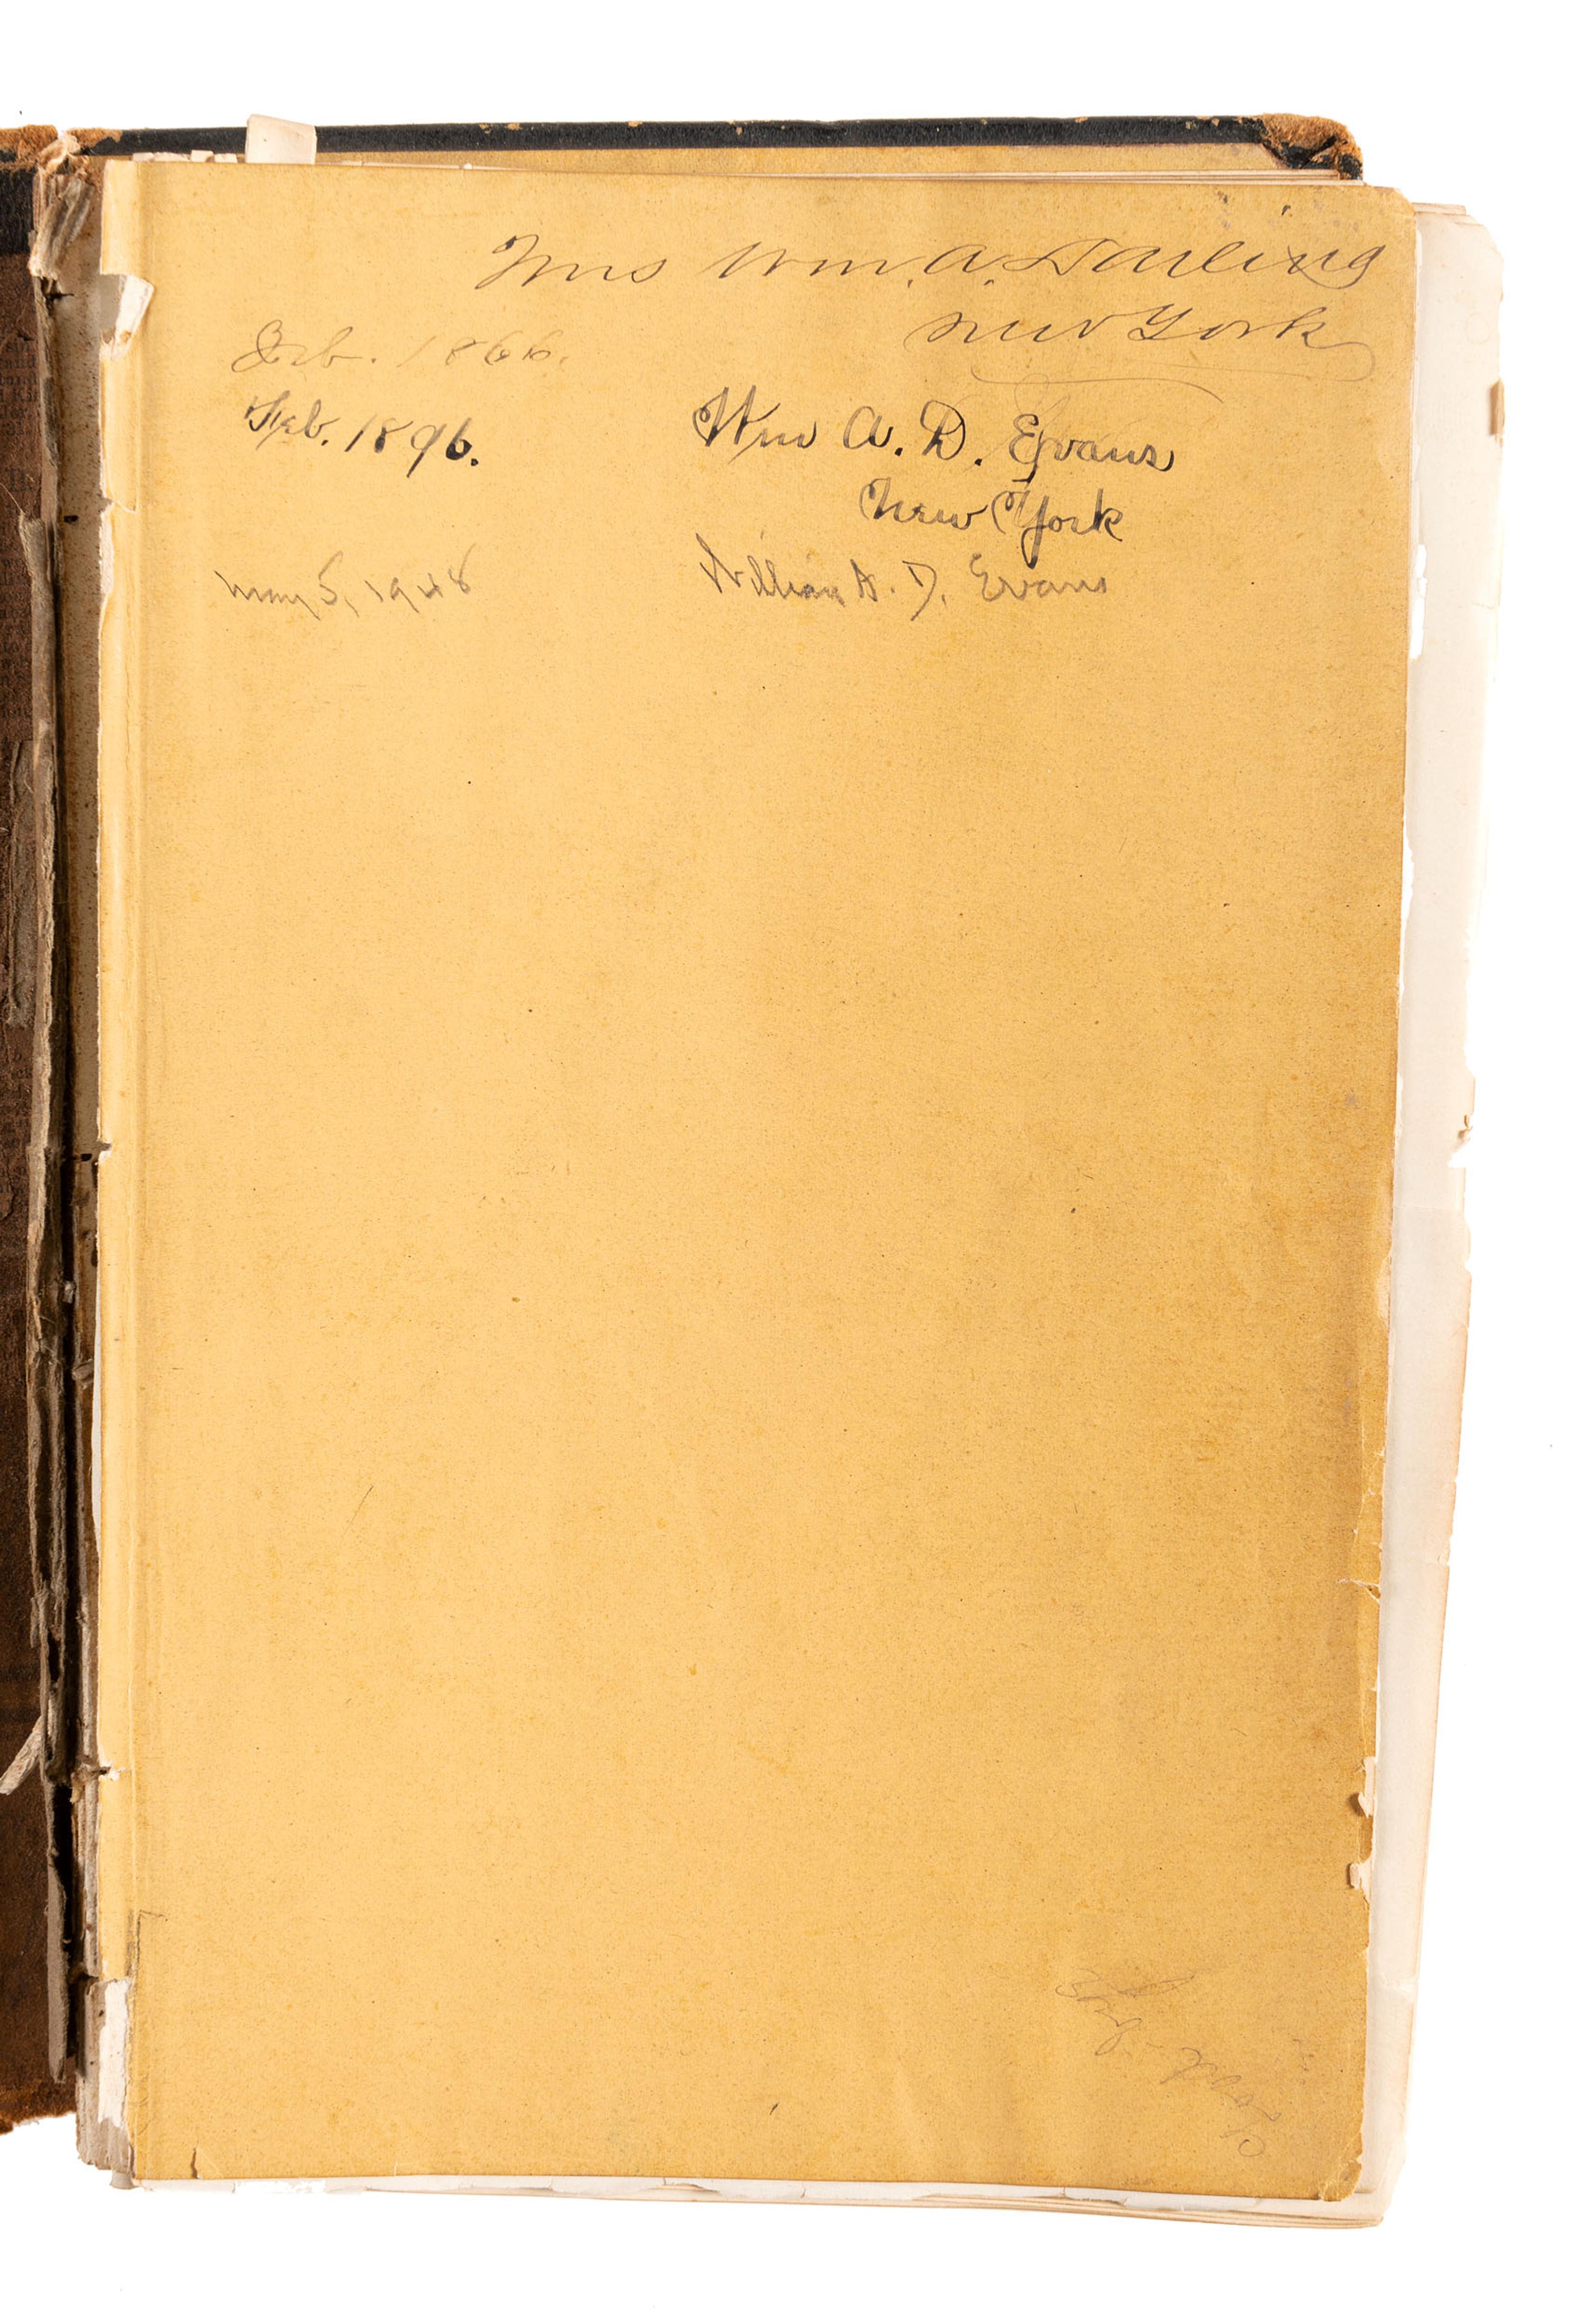 Mrs Wm. A. Darling
New York
Feb. 1866.
Feb. 1896. Wm A. D. Evans
New York
May 5, 1948 William A. D. Evans